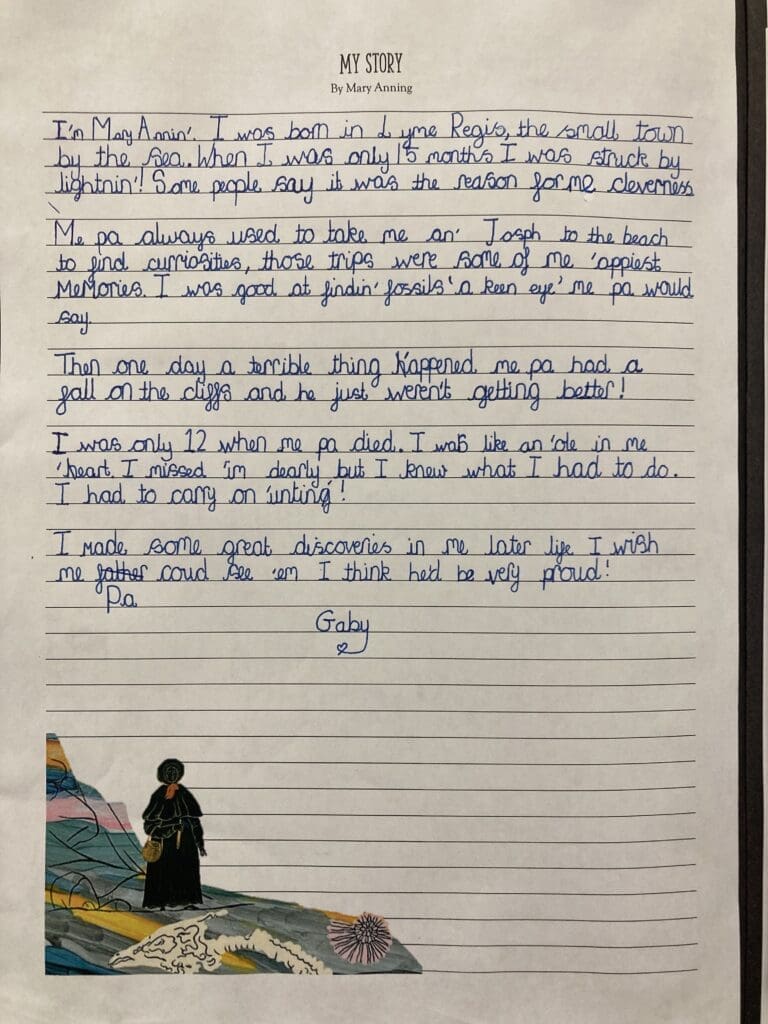 MY STORY
By Mary Anning
I'm Mary Annin'. I was born in Lyme Regis, the small town
by the sea. When I was only 15 months I was struck by
lightnin'! Some people say it was the reason for me cleverness
Me pa always used to take me an' Josph to the beach
to find curriosities, those trips were some of me 'appiest
memories. I was good at findin' fossils 'a keen eye' me pa would
say.
Then one day a terrible thing happened. me pa had a
fall on the cliffs and he just weren't getting better!
I was only 12 when me pa died. I was like an 'ole in me
'heart. I missed 'im dearly but I knew what I had to do.
I had to carry on 'unting'!
I made some great discoveries in me later life I wish
me father coud see 'em I think he'd be very proud!
Pa
Gaby